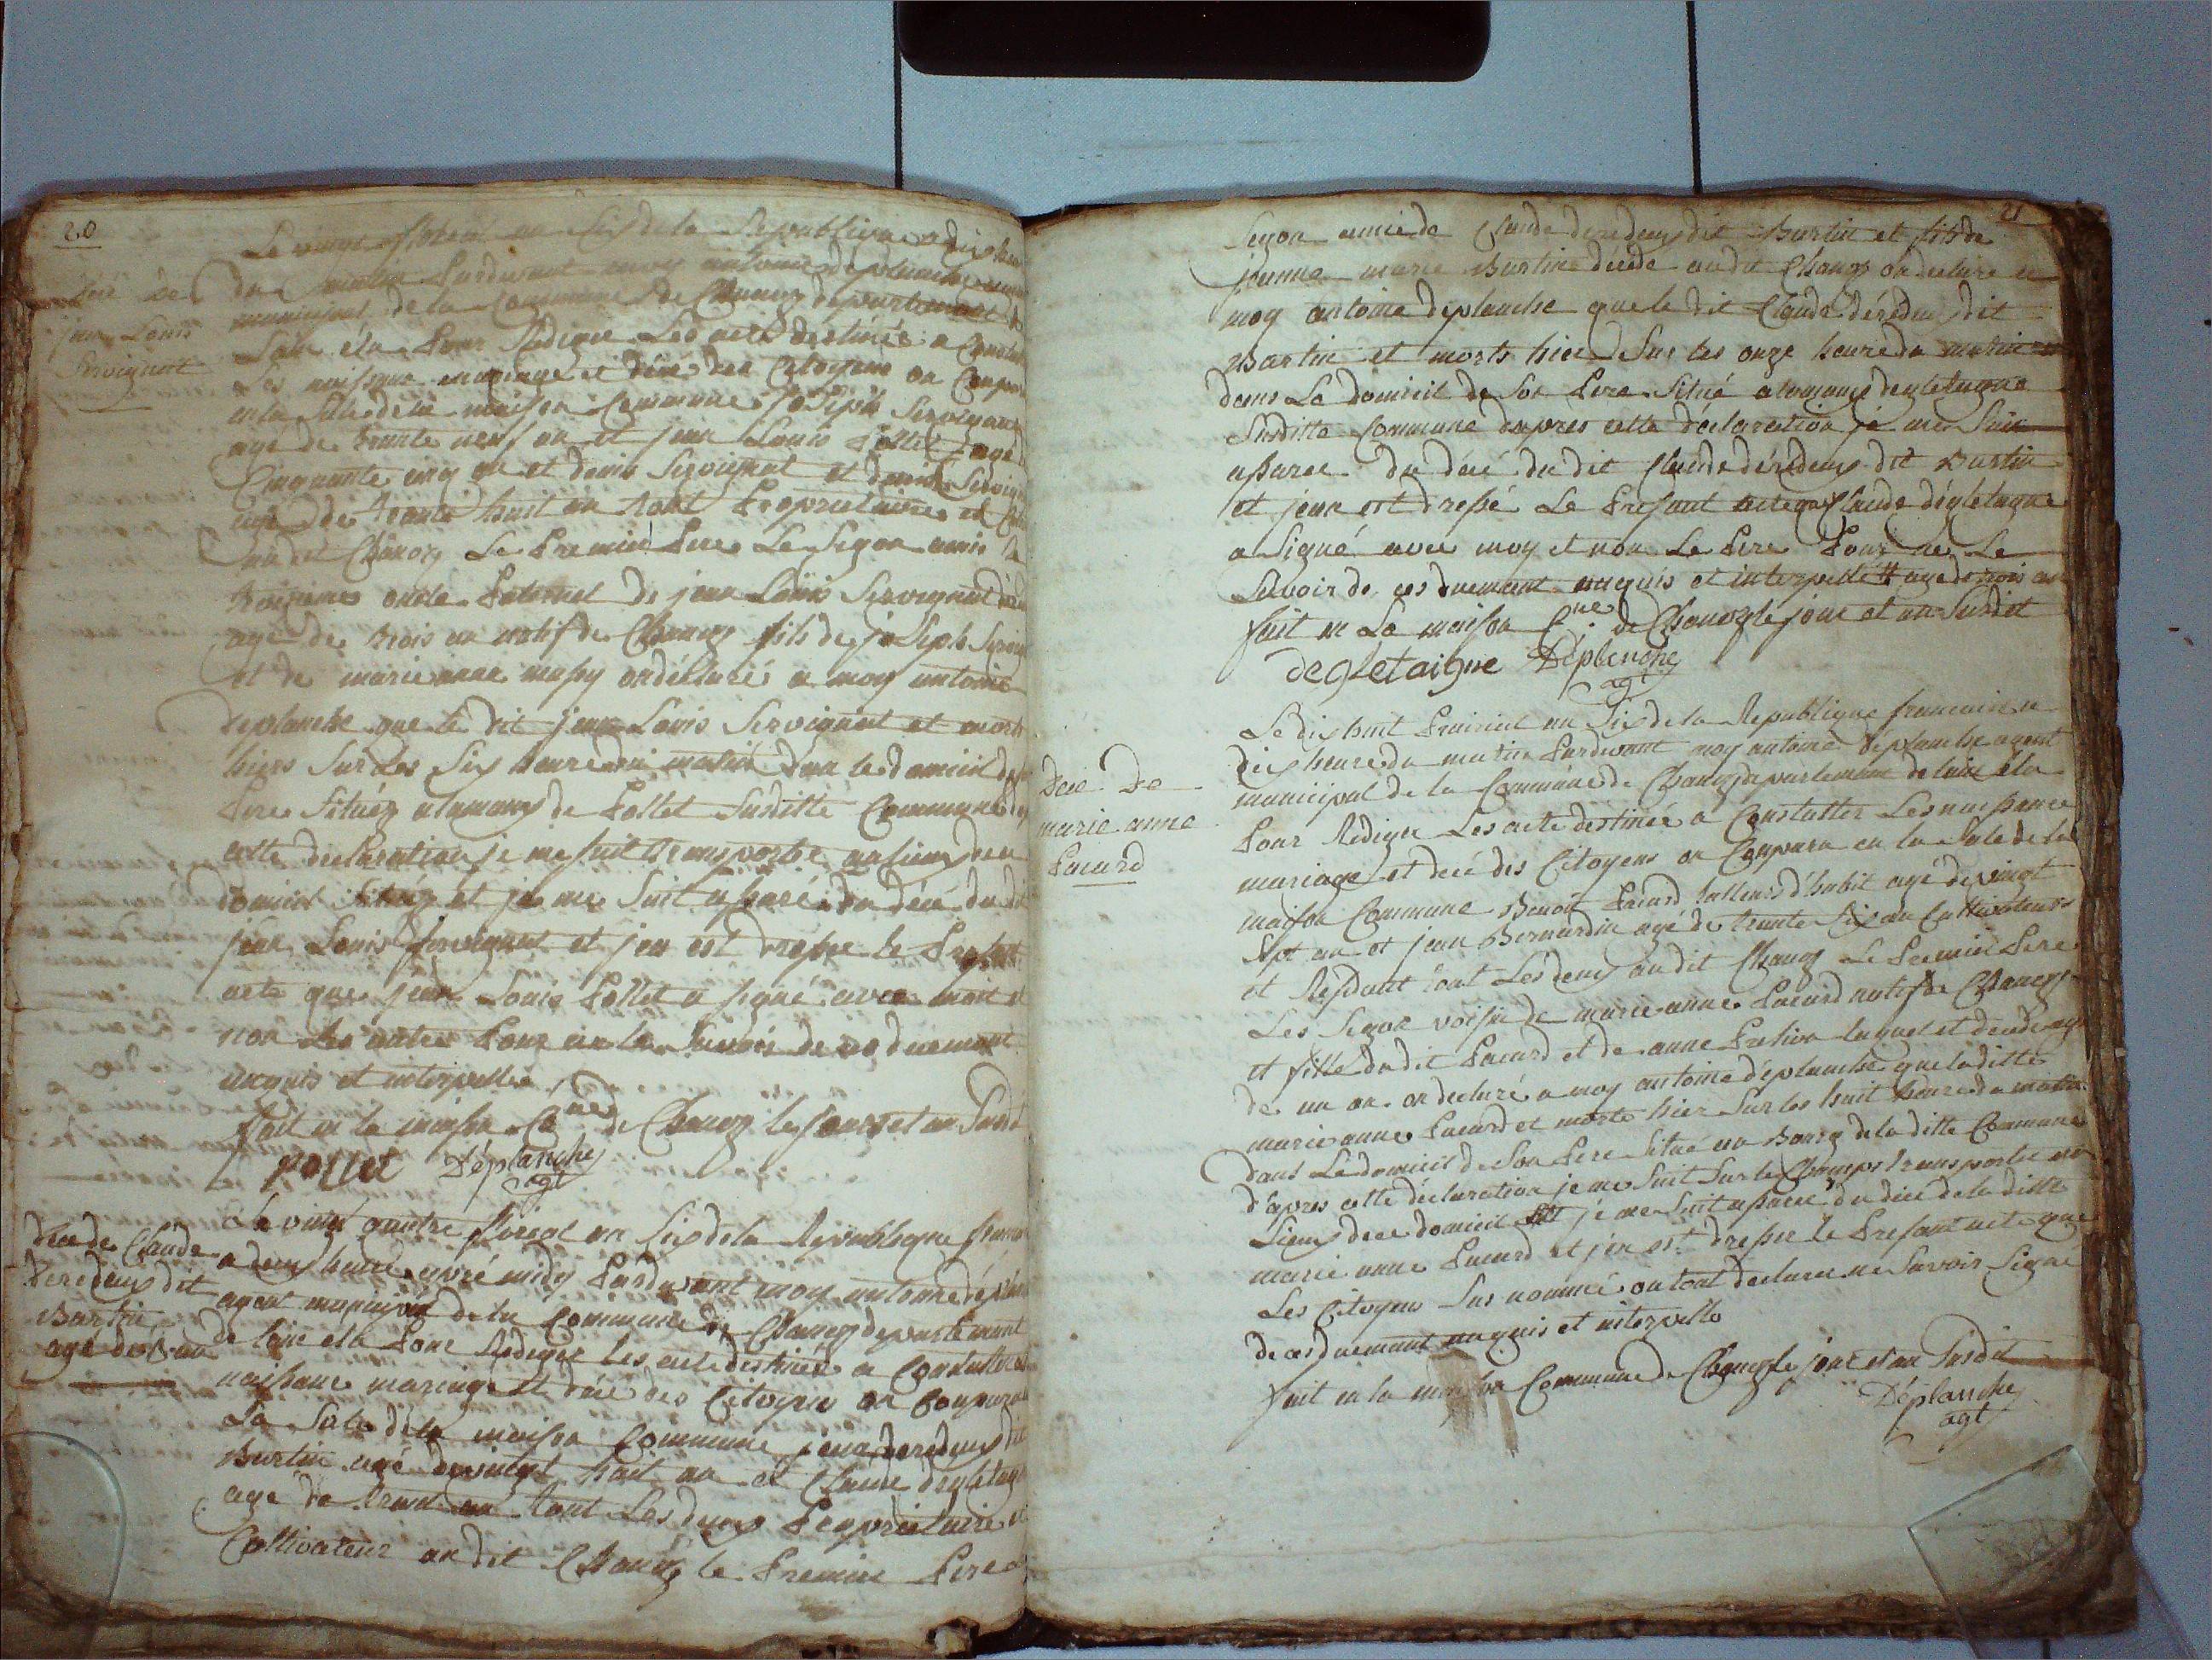 20
Le vingt floréal an Six de la Republique a dix heu
du matin Pardevant moy antoine déplanche
municipal de la Commune de Chanez departement de
Décé de
jean Louis
Servignat
Lain éla Pour Rediger Les acte destinée a Constat
Les naissance mariage et décé des Citoyens on Conpar
en la Sale de la maison Commune joSeph Servignat
agé de trante neuf an et jean Louis Pollet agé
Cinquante cinq an et denis Servignat
agé de trante huit an tout Proprietaire et
au dit Chanez Le Premier Pere Le Segon amis
troisieme oncle Paternel de jean Louis Servignat
age de trois an natif de Chanez fils de joSeph Servi
et de marie anne on déclaré a moy antoine
deplanche que le dit jean Louis Servignat et mort
hiers Sur Les Six heure du matin dan le domicil de
Pere Situéz a de Pollet Susditte Commune
cette declaration je me Suit transporté au lieux de ce
domicil et je me Suit aSsuré du décé du dit
jean Louis Servignat et jen est dressé le Presant
acte que jean Louis Pollet a signé avec moit et
non les autre Pour ne le Savoir de ce duemant
anquis et interpellée
fait en la maison Cone de Chanez le jours et an Susdit
Pollet Déplanche
agt
décé de Claude
deredeux dit
Burtin
agé de 3 an
Le vint quatre floreal an Six de la Republique franc
a deux heure apré midy Pardevant moy antoine dépla
agent municipal de la Commune de Chanez departemant
de Lain éla Pour Rediger les acte destinée a Constatter
naissance mariage et décé des Citoyens on Conparu
La Sale dela maison Commune jean deredeux dit
Burtin agé de vingt huit an et Claude degletagn
agé de an tout Les deux Proprietaire et
Cultivateur au dit Chanéz le Premier Pere
21
Segon amie de Claude deredeux dit Burtin et fils de
jeanne marie Burtin décédé au dit Chanez on declaré a
moy antoine déplanche que le dit Claude dérédeux dit
Burtin et morts hier Sur les onze heure du matin
dans Le domicil de Son Pere Situé de
Susditte Commune dapres cette déclaration je me Suit
assuree du décé du dit Claude dérédeux dit Burtin
et jean est dressé Le Presant acte que Claude dégletagne
a Signé avec moy et non Le Pere Pour ne Le
Savoir de ces duemant anquis et interpellé # agé de trois an
fait en La maison Cne de Chanez le jour et an Susdit
degletaigne Déplanche
agt
Décé de
marie anne
Pacard
Le dix huit Prairial an Six de la Republique francaise a
dix heure du matin Pardevant moy antoine déplanche agent
municipal de la Commune de Chanez departemant de Lain éla
Pour Rediger Les acte destinée a Constatter Les naissance
mariage et décé des Citoyens on Conparu en la Sale de la
maison Commune Benoit Pacard tailleur d'habit agé de vingt
Sept an et jean Bernardin agé de trante Six an Cultivateur
et Residant tout Les deux au dit Chanez Le Premier Pere
Les Segon voisin de marie anne Pacard natif de Chanez
et fille du dit Pacard et de anne laquel et decedé agé
de un an on declaré a moy antoine déplanche que la ditte
marie anne Pacard et morte hier Sur les huit heure du matin
dans Le domicil de Son Pere Situé au Bourg de la ditte Commune
d'apres cette déclaration je me Suit Sur le Champs transportée au
Lieux de ce domicil je me Suit assuree du décé de la ditte
marie anne Pacard et jen est dresser le Presant acte que
Les Citoyens Sus nommée on tout declaree ne Savoir Signe
de ces duemant anquis et interpelle
fait en la maison Commune de Chanez le jour et an Susdit
Déplanche
agt